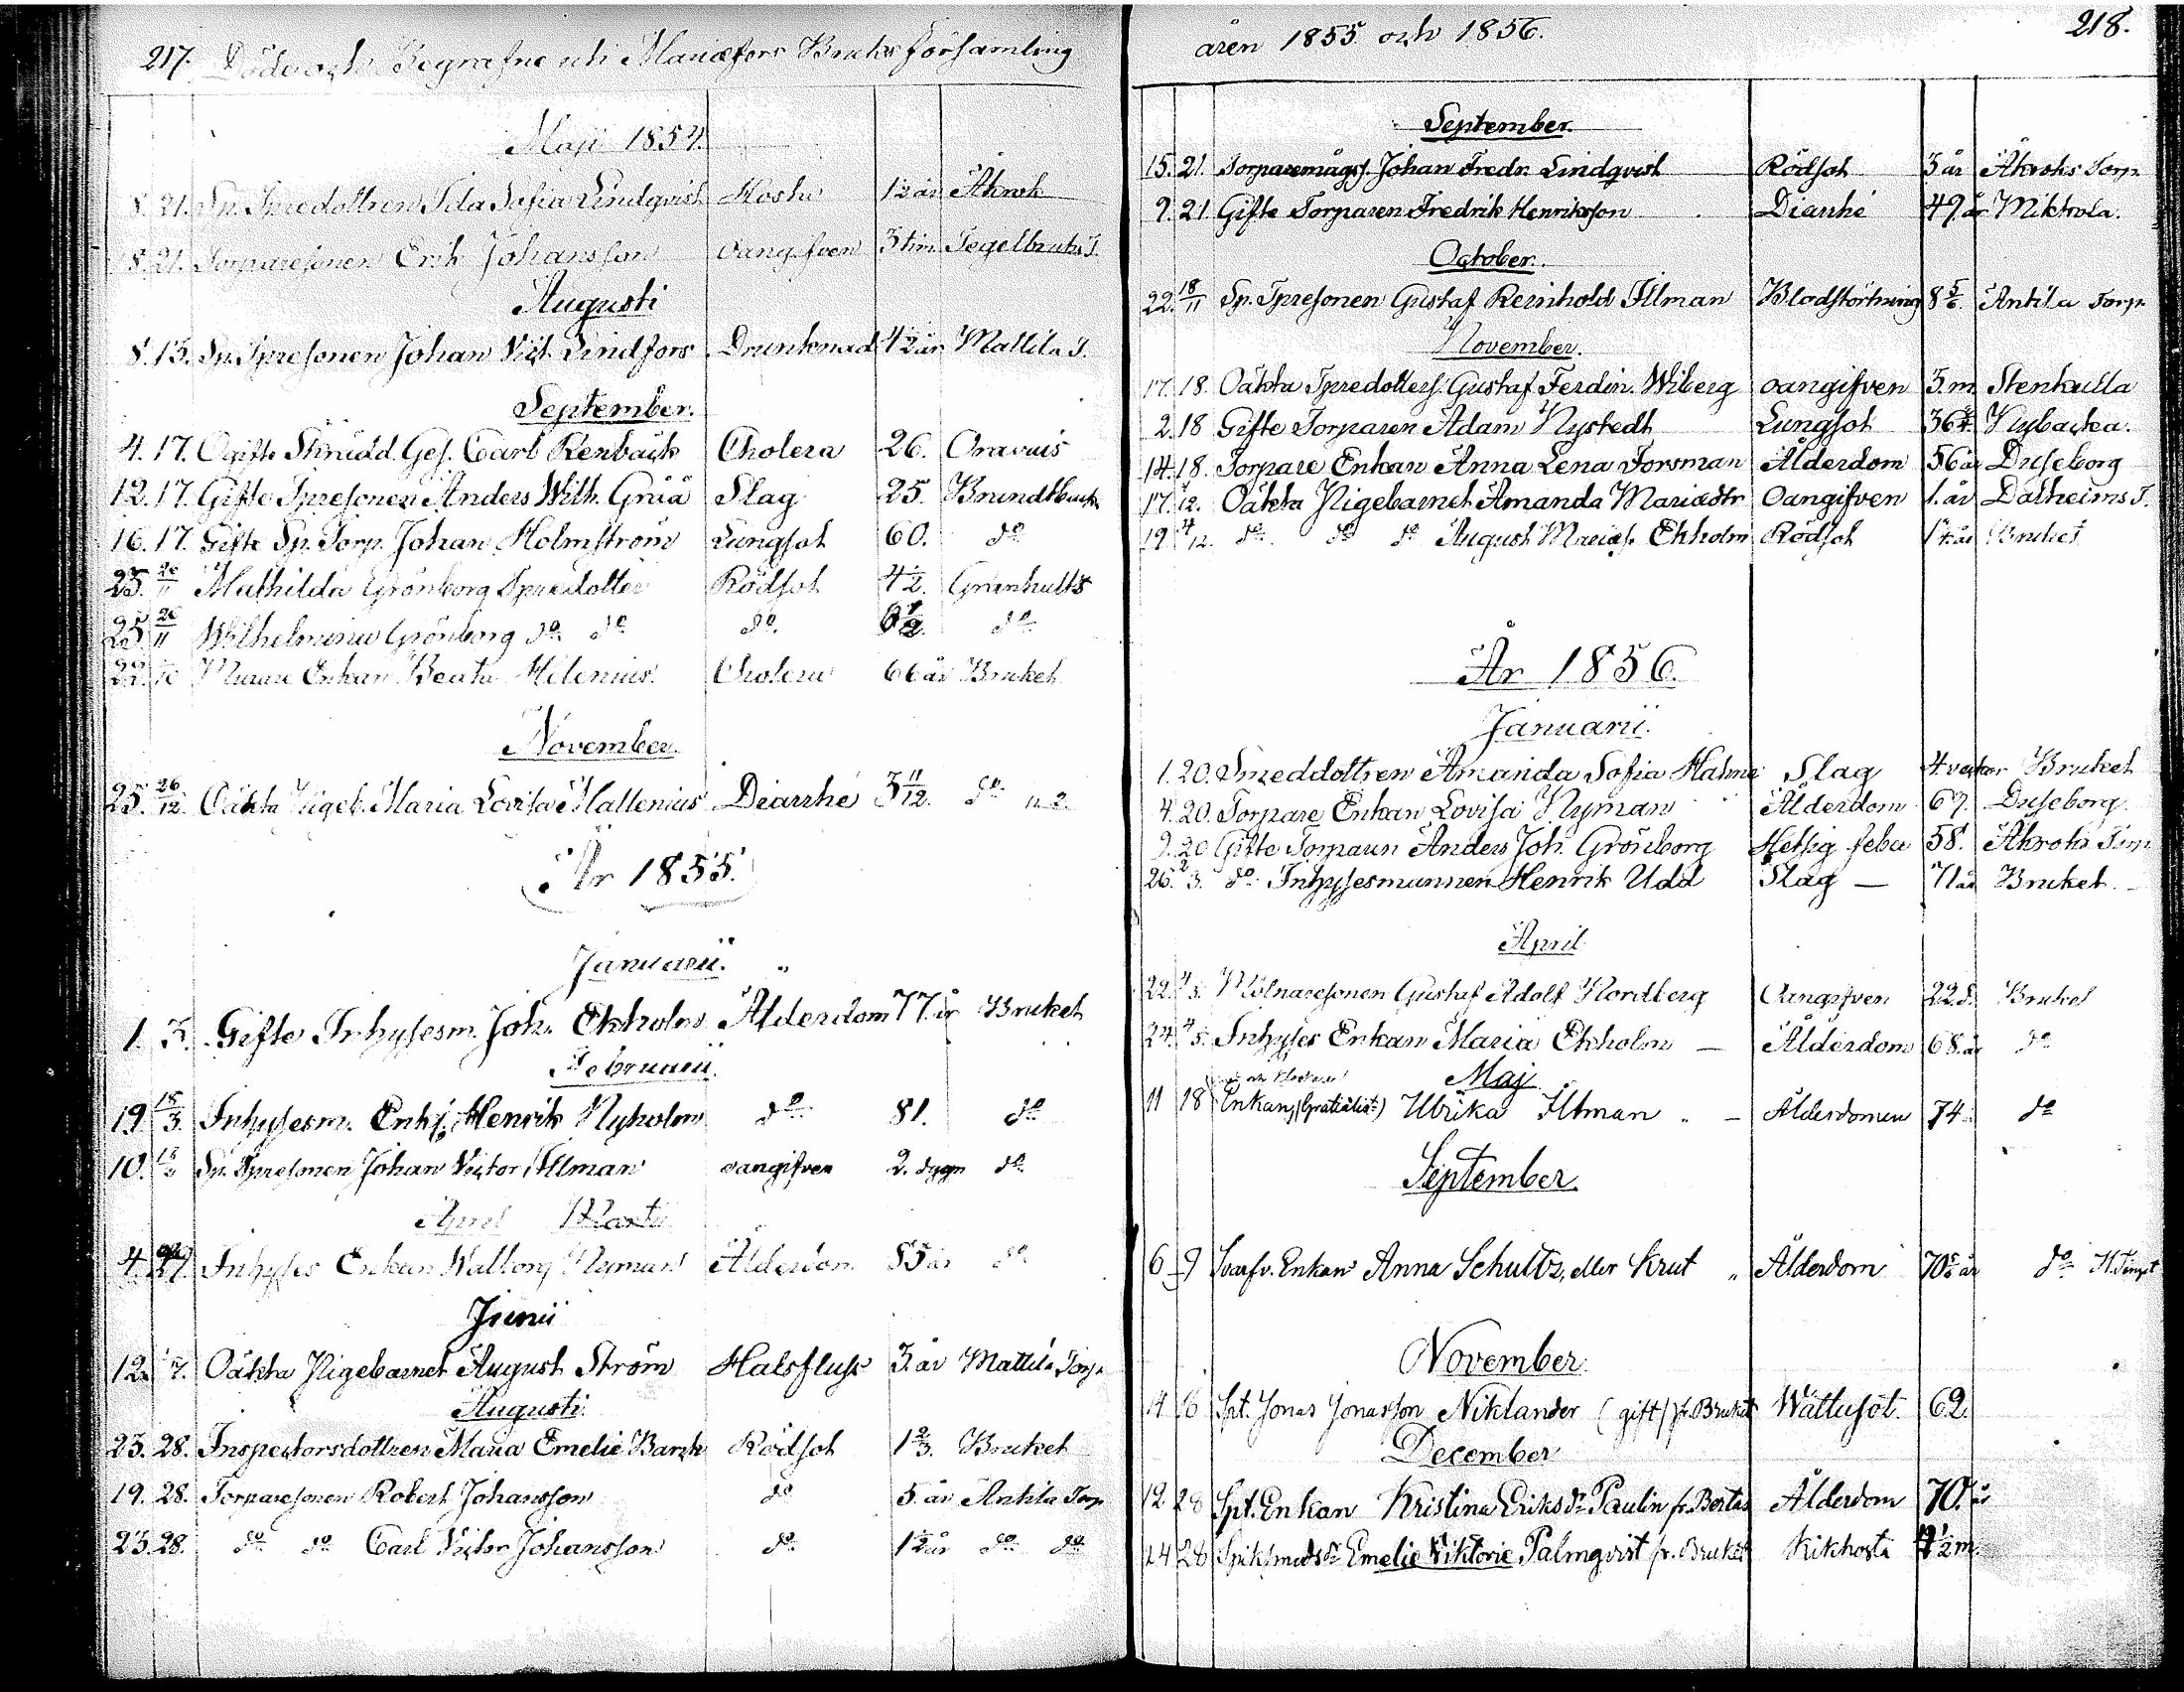 217. Döde och Begrafne uti Mariæfors Bruksförsamling
Maji 1854.
8. 21. Sp. Tpredottren Ida Sofia Lindqvist Hosta 1½ år Åkrok
18. 21. Torparesonen Erik Johansson oangifven 3 tim. Tegelbruks T.
Augusti
8. 13. Sp. Tpresonen Johan Vict. Lindfors Drunknad 4½ år Mattila T.
September.
4. 17. Ogifte Skrädd. Ges. Carl Renbäck Cholera 26. Oravais
12. 17. Gifte Tpresonen Anders Wilh. Grää Slag 25. Brundtback
16. 17. Gifte Sp. Torp. Johan Holmström Lungsot 60. do
25. 26/11 Mathilda Grönborg Tpredotter Rödsot 4½. Grankulls
25 26/11 Wilhelmina Grönborg do do do. ½. do
22. Murare Enkan Beata Helenius. Cholera 66 år Bruket
November.
25. 26/12. Oäkta Pigeb. Maria Lovisa Hallenius Diarrhé 3 11/12. do n. 2.
År 1855.
Januarii.
1. 3. Gifte Inhysesm. Joh. Ekholm Ålderdom 77. år Bruket
Februarii.
19. 18/3. Inhysesm. Enkj. Henrik Nyholm do 81. do
10. Sp. Tpresonen Johan Victor Illman oangifven 2. dygn do
April Martii
4. Inhyses Enkan Walborg Nyman Ålderdom 85 år do
Junii
12. 7. Oäkta Pigebarnet August Ström Halsfluss 3. år Mattila Torp.
Augusti.
23. 28. Inspectorsdottren Maria Emelie Barck Rödsot 1⅔. Bruket
19. 28. Torparesonen Robert Johansson do 5. år Antila Torp
23. 28. do do Carl Victor Johansson do. 1½ år do do
åren 1855 och 1856. 218.
September.
15. 21. Torparemågs. Johan Fredr. Lindqvist Rödsot 3 år Åkroks Torp.
9. 21 Gifte Torparen Fredrik Henriksson Diarrhé 49 år Miktrola.
October.
22. 18/11 Sp. Tpresonen Gustaf Reinhold Illman Blodstörtning 8 5/6. Antila Torp.
November.
17. 18. Oäkta Tpredotters. Gustaf Ferdin. Wiberg oangifven 3. m. Stenkulla
2. 18 Gifte Torparen Adam Nystedt Lungsot 36¾. Nybacka.
14. 18. Torpare Enkan Anna Lena Forsman Ålderdom 56 år Duseborg
17. 12. Oäkta Pigebarnet Amanda Mariædtr Oangifven 1. år Dalheims T.
19 4/12. do do do August Mariæs. Ekholm Rödsot 1¼ år Bruket
År 1856.
Januarii.
1. 20. Smeddottren Amanda Sofia Halme Slag 4 veckor Bruket
4. 20. Torpare Enkan Lovisa Nyman Ålderdom 67. Duseborg.
9. 20 Gifte Torparen Anders Joh. Grönborg Hetsig feber 58. Åkroks Torp
26. 2/3. do Inhysesmannen Henrik Udd Slag — 71 år Bruket.
April
22. 4/5. Mölnaresonen Gustaf Adolf Nordberg Oangifven 22 d. Bruket
24. 4/5. Inhyses Enkan Maria Ekholm — Ålderdom 68. år do
Maj
11 18 Enkan, (Gratialist.) Ulrika Illman — Ålderdomen 74 do
September.
6 9 Svarfv. Enkan Anna Schultz, eller Krut Ålderdom 70 5/6 år do
November.
14 16 Spt. Jonas Jonasson Niklander (gift) fr. Bruket Wattusot. 62.
December
12 28 Spt. Enkan Kristina Eriksdr Paulin fr. Bertas Ålderdom 70. år
24 28 Spiksmedsdr Emelie Viktorie Palmqvist fr. Bruket Kikhosta ½ m.